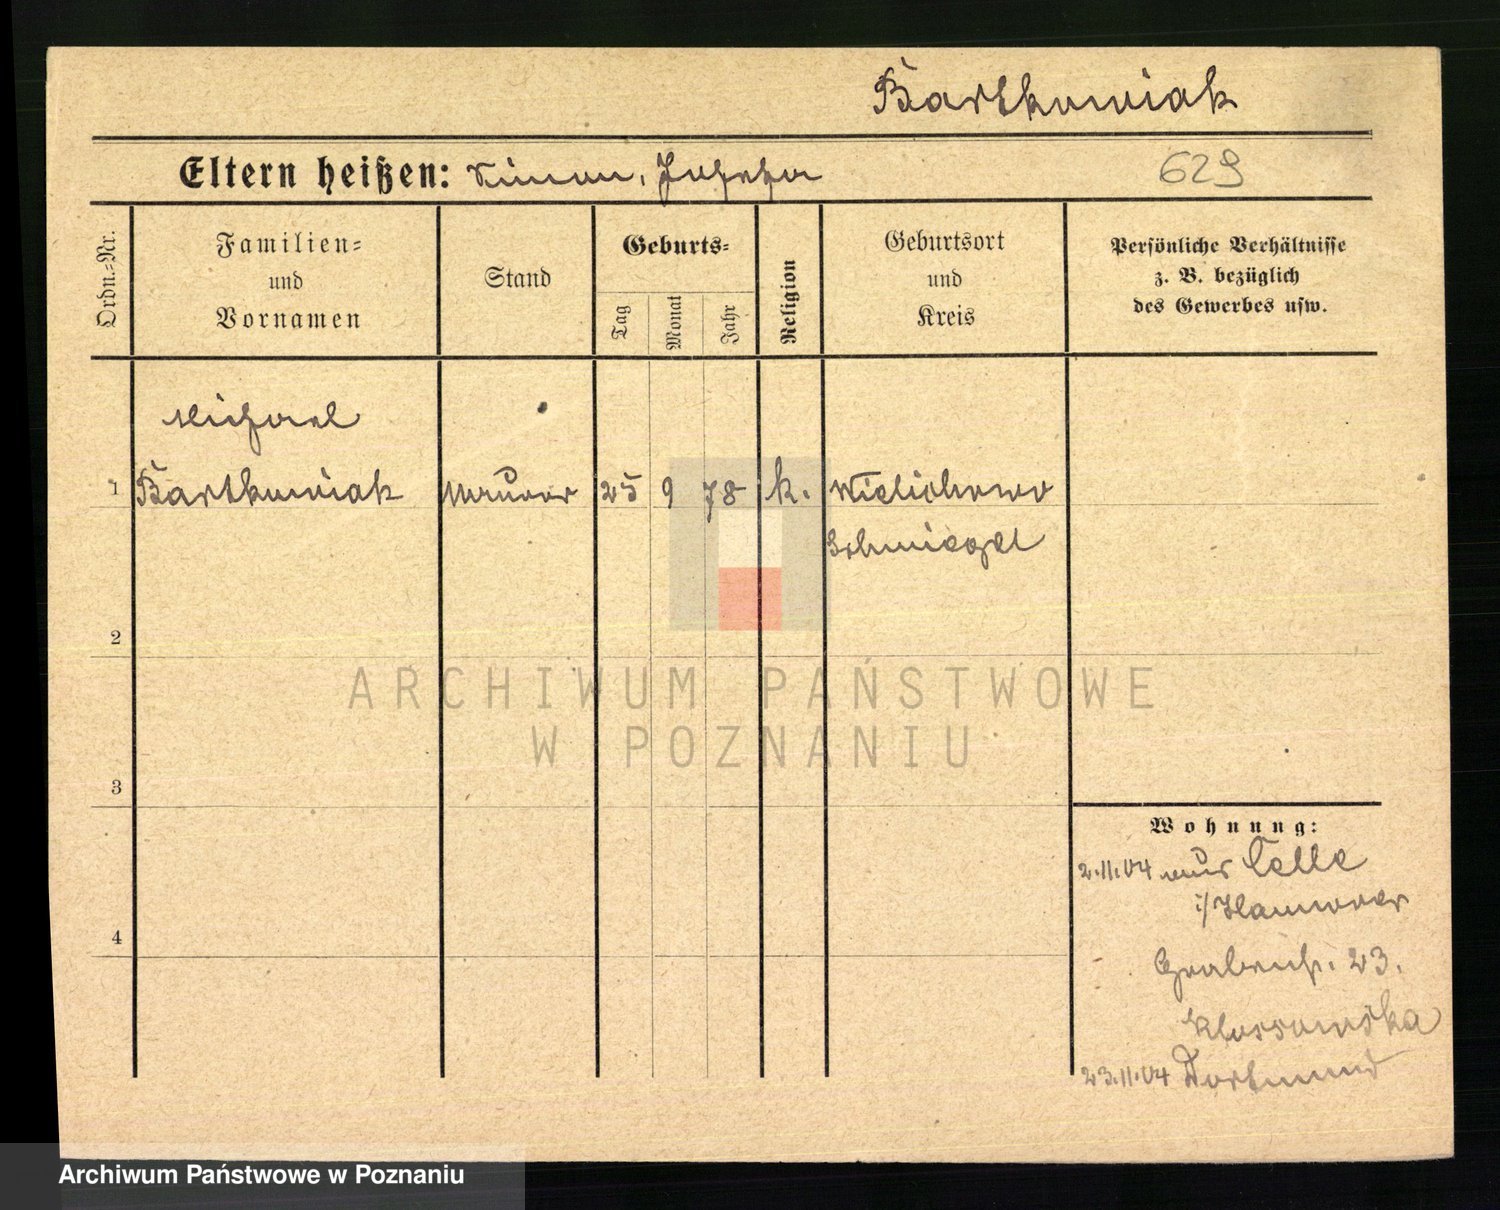 Bartkowiak
Eltern heißen: Simon, Josefa
629
Ordn.=Nr.
Familien=
und
Vornamen
Stand
Geburts=
Tag
Monat
Jahr
Religion
Geburtsort
und
Kreis
Persönliche Verhältnisse
z. B. bezüglich
des Gewerbes usw.
Michael
1 Bartkowiak Maurer 25 9 78 k. Wielichowo
Schmiegel
2
ARCHIWUM PAŃSTWOWE
W POZNANIU
3
Wohnung:
2.11.04 aus Celle
i/Hannover
4
23.
Klossowska
23.11.04 Dortmund
Archiwum Państwowe w Poznaniu